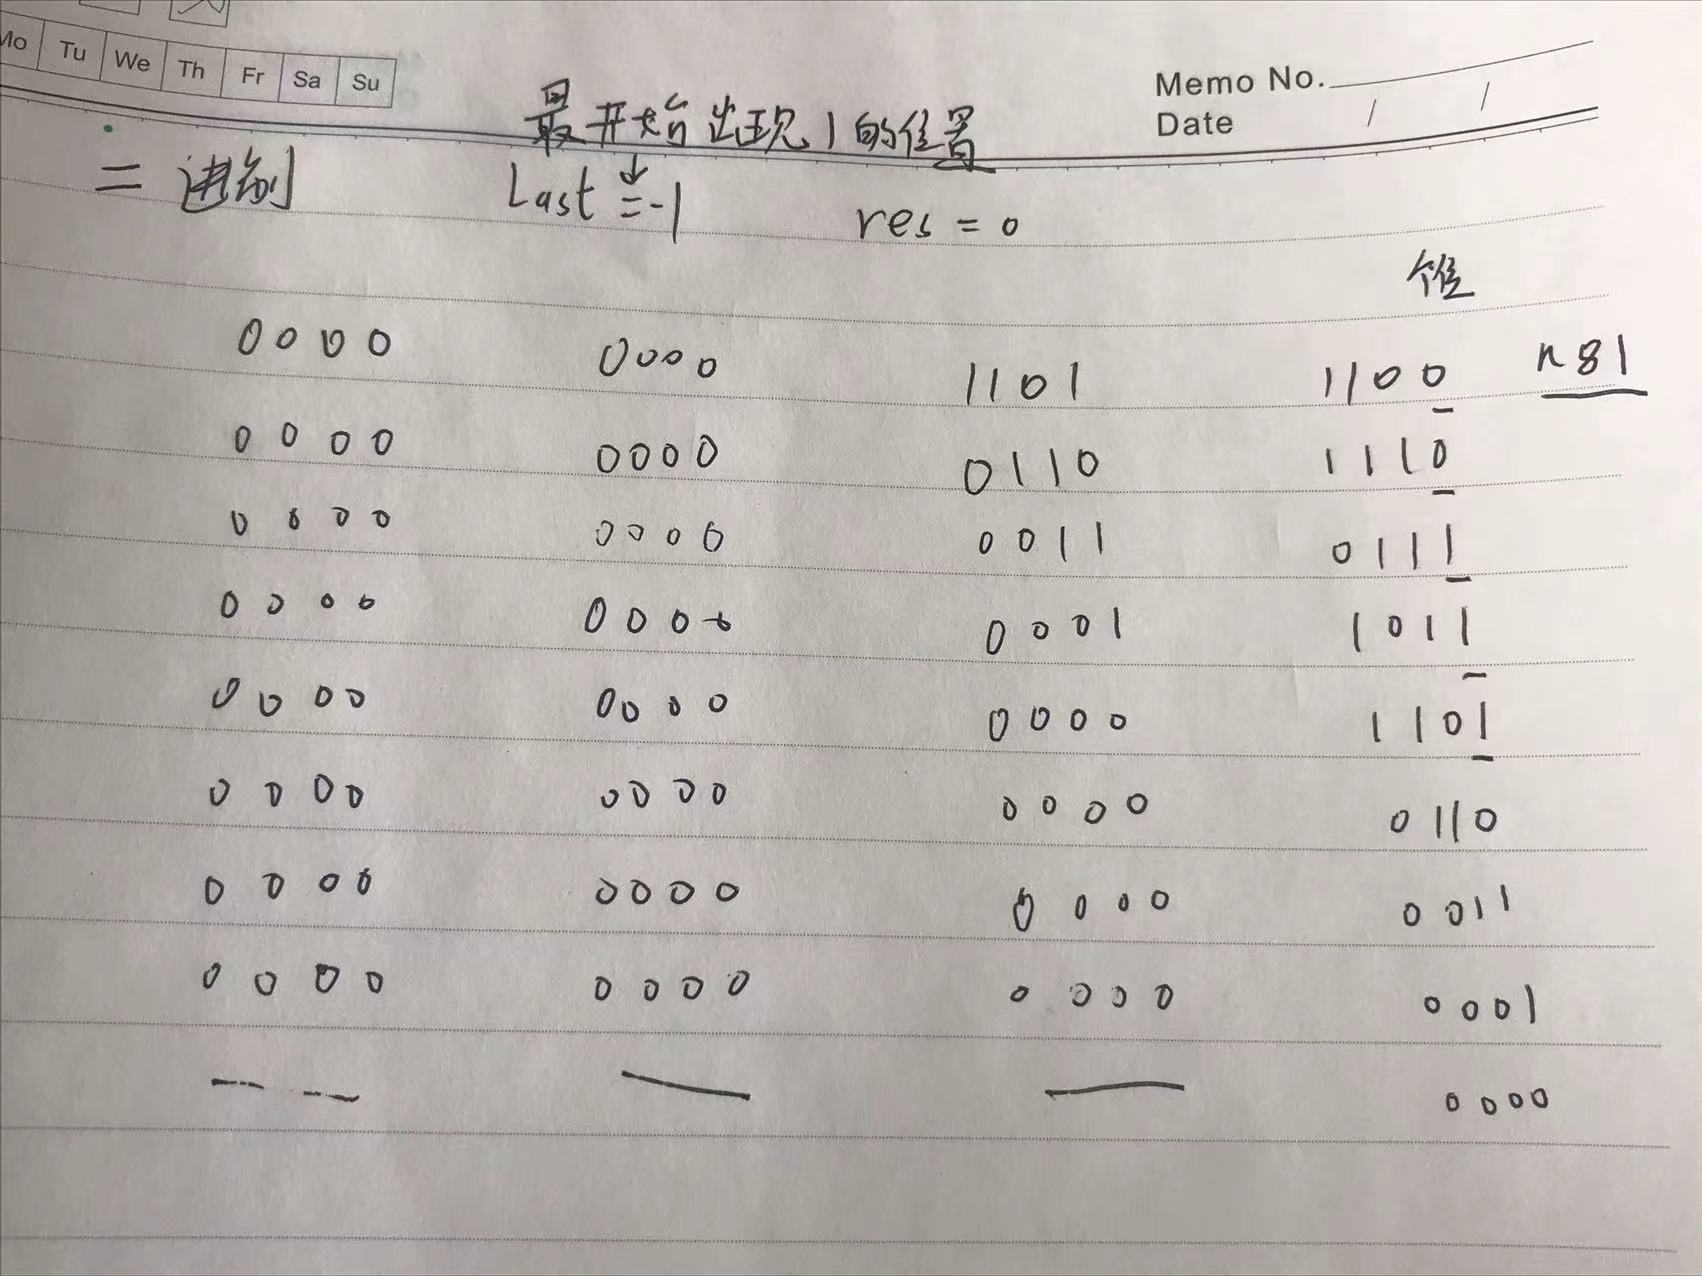 Mo Tu We Th Fr Sa Su
Memo No.
Date / /
最开始出现1的位置
二进制 Last = -1 res = 0
个位
0000 0000 1101 1100 n&1
0000 0000 0110 1110
0000 0000 0011 0111
0000 0000 0001 1011
0000 0000 0000 1101
0000 0000 0000 0110
0000 0000 0000 0011
0000 0000 0000 0001
0000